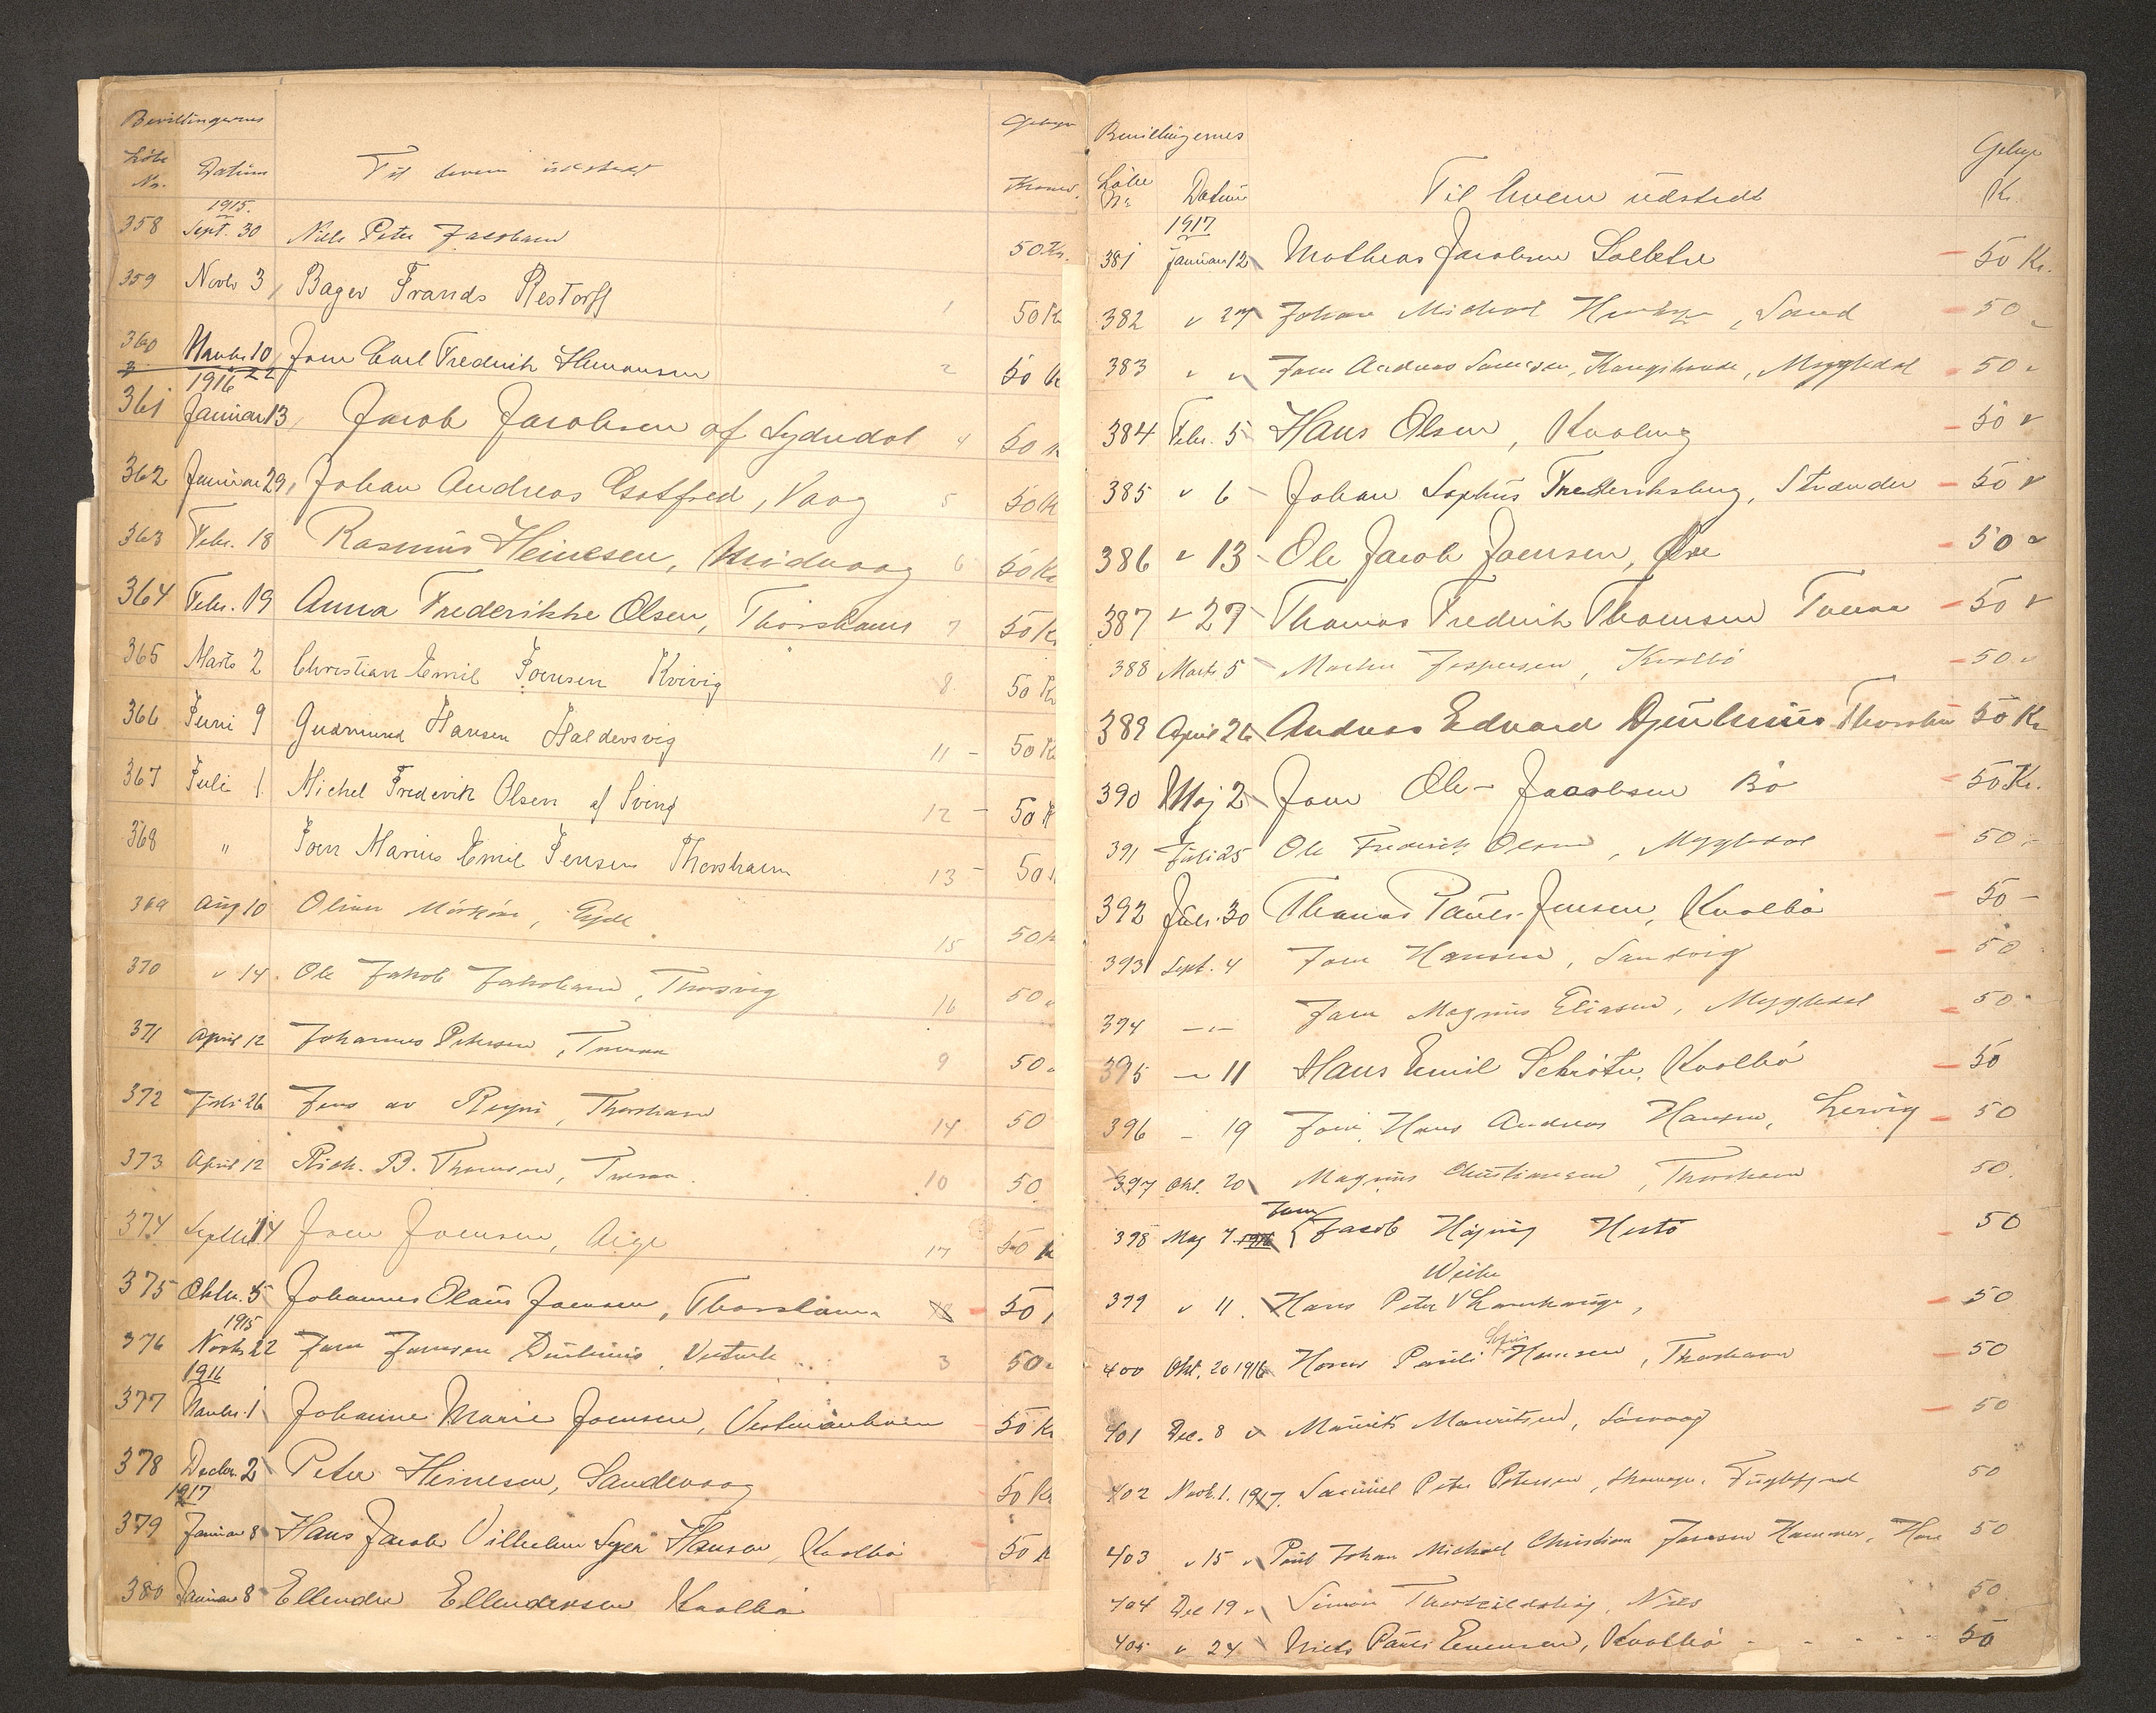 Bevillingernes Gebyr
Löbe Nr. Datum Til hvem udstedt Kroner
1915.
358 Sept. 30 Niels Peter Jacobsen 50 Kr.
359 Novbr 3, Bager Frands Restorff 1 50 K
360 Novbr. 10, Joen Carl Fredrik Hermansen 2 50 K
3 22
1916
361 Januar 13, Jacob Jacobsen af Sydredal 4 50 K
362 Januar 29, Johan Andreas Gotfred, Vaag 5 50 K
363 Febr. 18 Rasmus Heinesen, Midvaag 6 50 Kr
364 Febr. 19 Anna Frederikke Olsen, Thorshavn 7 50 K
365 Marts 2 Christian Emil Joensen Kvivig 8 50 K
366 Juni 9 Gudmund Hansen Haldersvig 11 - 50 K
367 Juli 1 Michel Frederik Olsen af Svinø 12 - 50 K
368 " Joen Marius Emil Jensen Thorshavn 13 - 50
369 Aug 10 Olivur Mörköre, Ejde 15 50 K
370 " 14. Ole Jakob Jakobsen, Thorsvig 16 50 "
371 April 12 Johannes Petersen, Tveraa 9 50 "
372 Juli 26 Jens av Reyni, Thorshavn 14 50
373 April 12 Rich. B. Thomsen, Tveraa 10 50
374 Septbr. 14 Joen Joensen, Øige 17 50 K
375 Oktbr. 5 Johannes Olaus Joensen, Thorshavn 18 - 50
1915
376 Novbr 22 Joen Joensen Djurhuus, 3 50 "
1916
377 Novbr. 1 Johanne Marie Joensen, Vestmanhavn 50 Kr
378 Decbr. 2 Peter Heinesen, Sandevaag 50 Kr
1917
379 Januar 8 Hans Jacob Vilhelm Hansen, Kvalbö 50 K
380 Januar 8 Ellendur Ellendersen Kvalbö
Bevillingernes Gebyr
Löbe Nr. Datum Til hvem udstedt Kr.
1917
381 Januar 12 Mathias Jacobsen - 50 Kr.
382 " 27 Johan Michael , Sand - 50 "
383 " " Joen Andreas Samsen, , Mygledal - 50 "
384 Febr. 5 Hans Olsen, - 50 "
385 " 6 - Johan Sophus Frederiksberg, Strænder - 50 "
386 " 13 - Ole Jacob Joensen, Öre - 50 "
387 " 27 Thomas Fredrik Thomsen Tveraa - 50 "
388 Marts 5 Morten Jespersen, Kvalbö - 50 "
389 April 26 Andreas Edvard Djurhuus Thorshavn 50 Kr
390 Maj 2 Joen Ole Jacobsen Bö - 50 Kr.
391 Juli 25 Ole Frederik Olsen, Mygledal - 50 -
392 Juli 30 Thomas Pauli Jensen, Kvalbö - 50 -
393 Sept. 4 Joen Hansen, Sandvig - 50
394 -"- Joen Magnus Eliasen, Mygledal - 50 "
395 - 11 Hans Emil Schröter, Kvalbö - 50
396 - 19 Joen Hans Andreas Hansen, Lervig - 50
397 Okt. 20 Magnus Christiansen, Thorshavn 50.
Joen
398 Maj 7 1916 Jacob Højning Hestö - 50
Weihe
399 " 11. Hans Peter V , - 50
400 Okt. 20 1916 Pauli Hansen, Thorshavn - 50
401 Dec. 8 " Maurits Mauritsen, Sörvaag - 50
402 Novb. 1. 1917. Samuel Peter Petersen, Fuglefjord 50
403 " 15 " Poul Johan Michael Christian Hammer, 50
404 Dec 19 " Simon , Næs 50
405 " 24 Niels Pauli Evensen, Kvalbö - - - - - 50